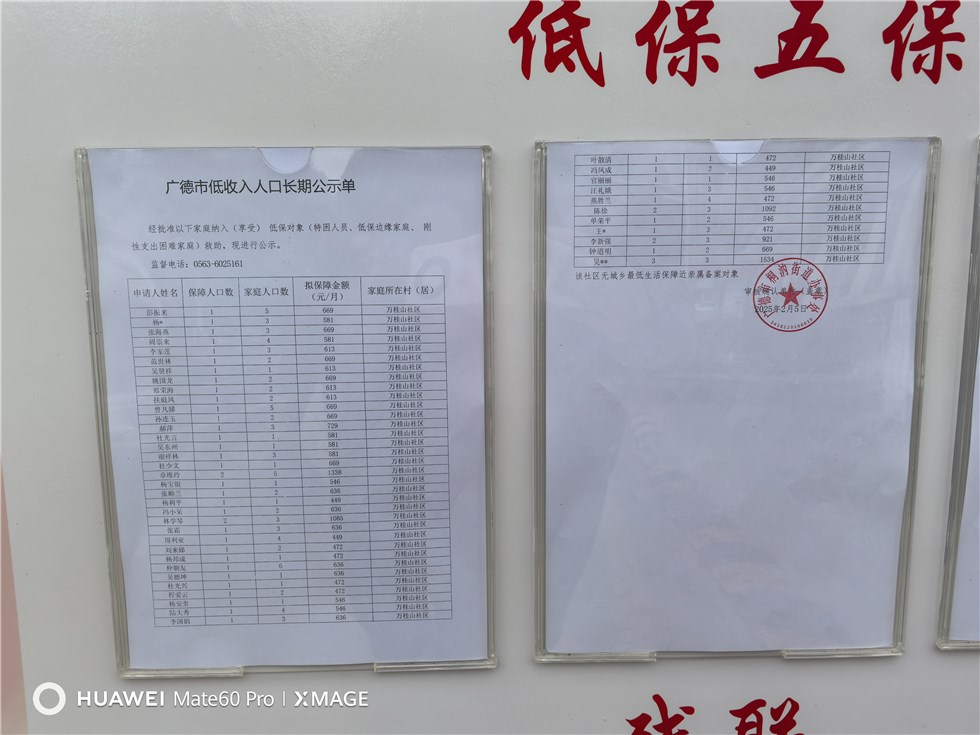 低保五保
广德市低收入人口长期公示单
经批准以下家庭纳入（享受） 低保对象（特困人员、低保边缘家庭、 刚
性支出困难家庭）救助。现进行公示。
监督电话：0563-6025161
申请人姓名 保障人口数 家庭人口数 拟保障金额（元/月） 家庭所在村（居）
彭振来 1 5 669 万桂山社区
杨* 1 3 581 万桂山社区
张海燕 1 3 669 万桂山社区
周宗来 1 4 581 万桂山社区
李家莲 1 3 613 万桂山社区
范世林 1 2 669 万桂山社区
吴贤祥 1 1 613 万桂山社区
姚国龙 1 2 669 万桂山社区
郑荣海 1 2 613 万桂山社区
扶庭凤 1 2 613 万桂山社区
曾凡娣 1 5 669 万桂山社区
孙连玉 1 2 669 万桂山社区
郝萍 1 3 729 万桂山社区
杜光言 1 1 581 万桂山社区
吴东洲 1 1 581 万桂山社区
谢祥林 1 3 581 万桂山社区
杜少文 1 1 669 万桂山社区
2 5 1338 万桂山社区
杨宝银 1 1 546 万桂山社区
张顺兰 1 2 636 万桂山社区
杨利平 1 1 449 万桂山社区
冯小呆 1 2 636 万桂山社区
林学琴 2 3 1085 万桂山社区
张霜 1 3 636 万桂山社区
周利亚 1 4 449 万桂山社区
刘来娣 1 2 472 万桂山社区
杨邦成 1 1 472 万桂山社区
仲朝友 1 6 636 万桂山社区
吴德坤 1 1 636 万桂山社区
杜光兴 1 1 472 万桂山社区
程爱云 1 2 472 万桂山社区
杨安奎 1 1 546 万桂山社区
陆大秀 1 4 546 万桂山社区
李国娟 1 3 636 万桂山社区
叶散清 1 1 472 万桂山社区
冯凤成 1 2 449 万桂山社区
官丽丽 1 1 546 万桂山社区
汪礼娥 1 3 546 万桂山社区
燕胜兰 1 4 472 万桂山社区
陈徐 2 3 1092 万桂山社区
单荣平 1 2 546 万桂山社区
王* 1 3 472 万桂山社区
李新强 2 3 921 万桂山社区
钟道明 1 2 669 万桂山社区
吴** 3 3 1534 万桂山社区
该社区无城乡最低生活保障近亲属备案对象
2025年2月5日
残联
HUAWEI Mate60 Pro | XMAGE